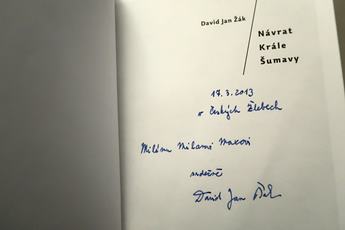 David Jan Žák
Návrat
Krále
Šumavy
17. 3. 2013
v Českých Žlebech
Milanu
srdečně
David Jan Žák